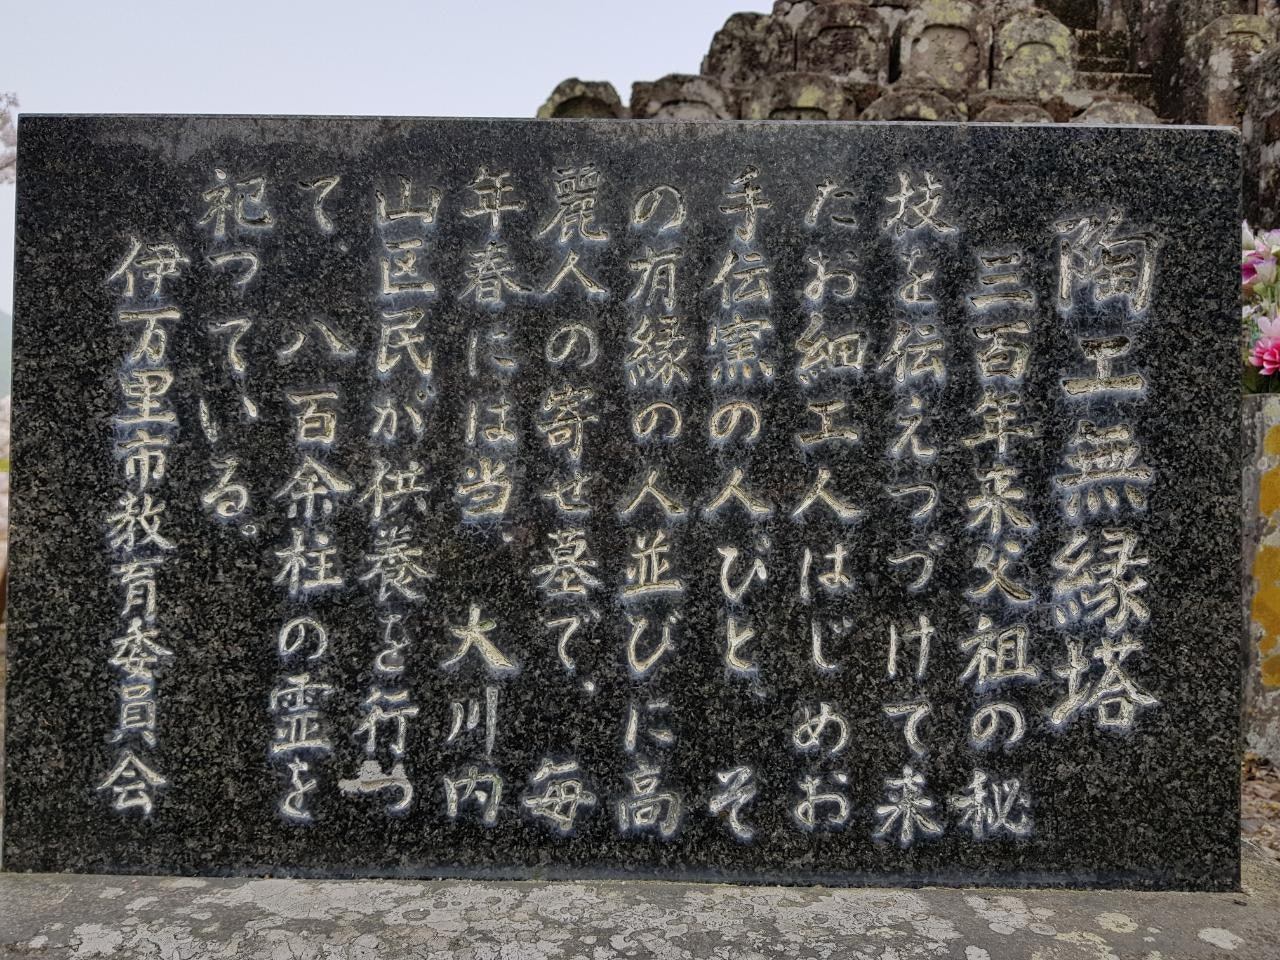 陶工無縁塔
三百年来父祖の秘
技を伝えつづけて来
たお細工人はじめお
手伝窯の人びと、そ
の有縁の人並びに高
麗人の寄せ墓で、毎
年春には当、大川内
山区民が供養を行つ
て、八百余柱の霊を
祀つている。
伊万里市教育委員会